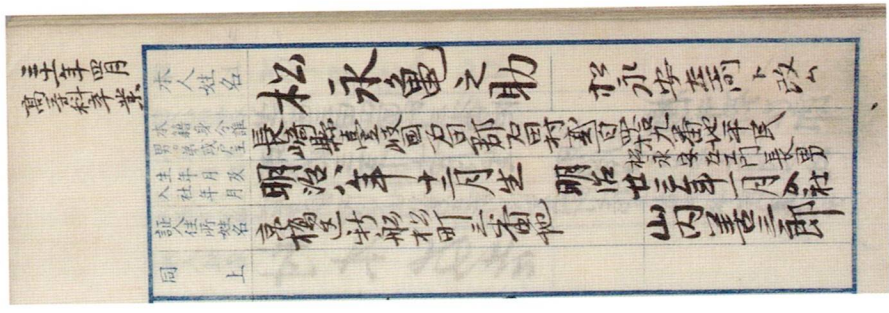 三十一年四月
高等科卒業
本人姓名
松永亀之助
松永安左衛門ト改ム
本籍身分誰
男弟或戸主
長崎縣壹岐國石田郡石田村
番地平民
松永安左エ門長男
生年月及
入社年月
明治八年十二月生
明治廿三年一月入社
証人住所姓名
京橋区
町三番地
山内善三郎
同上